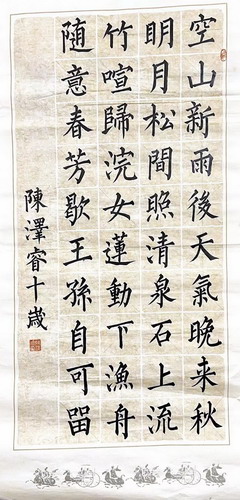 空山新雨後天氣晚来秋
明月松間照清泉石上流
竹喧歸浣女蓮動下漁舟
随意春芳歇王孫自可留
陳澤睿十歳